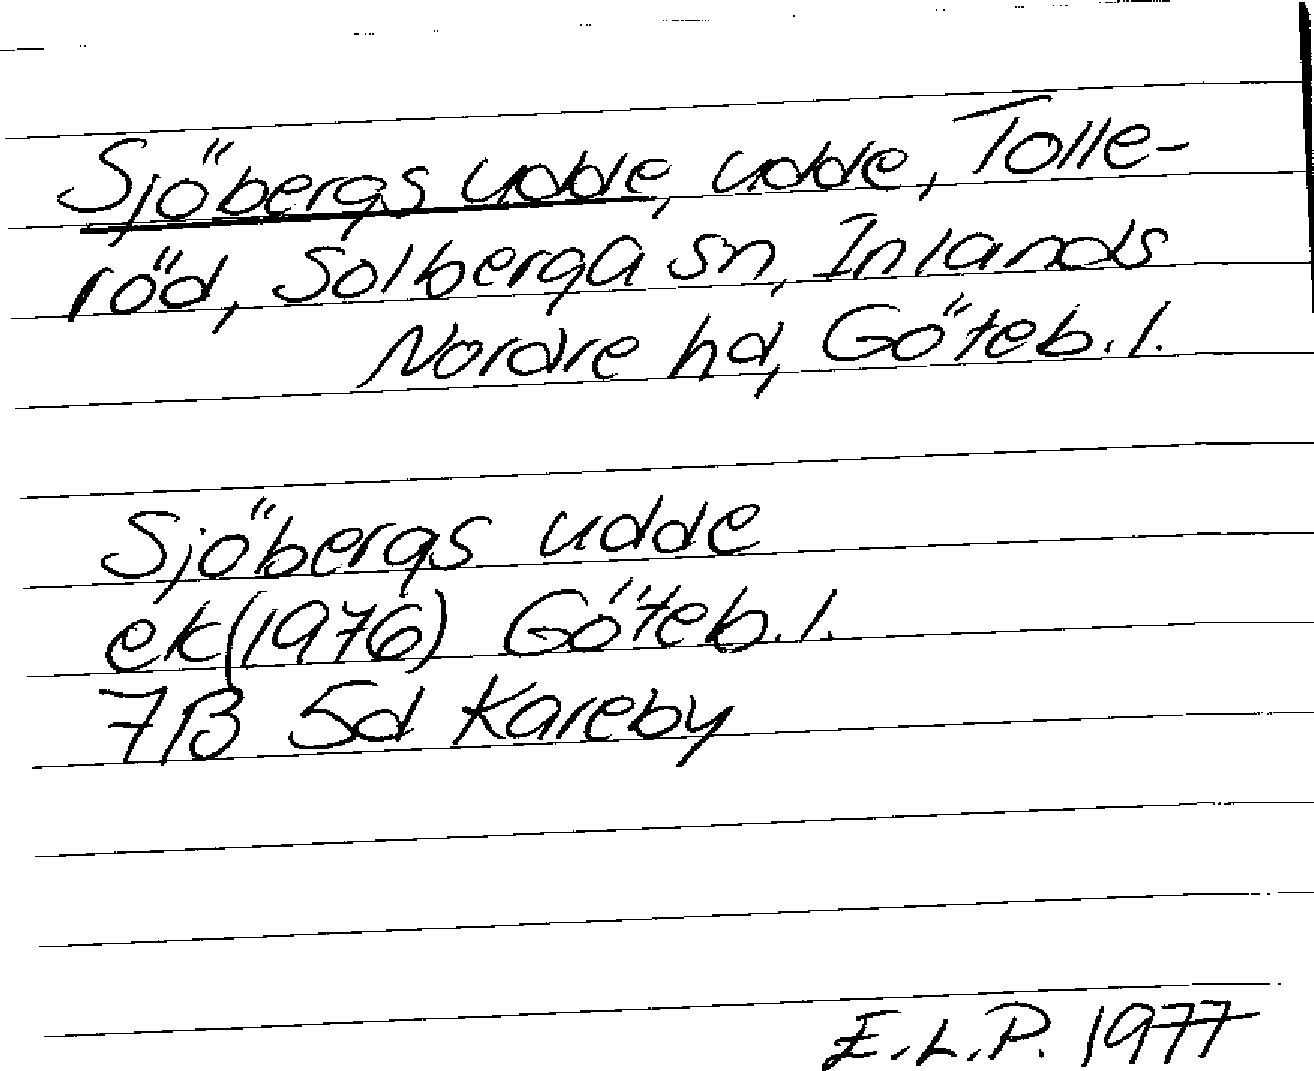 Sjöbergs udde, udde, Tolle-
röd, Solberga sn, Inlands
Nordre hd, Göteb. l.
Sjöbergs udde
ek (1976) Göteb. l.
7B 5d Kareby
E.L.P. 1977